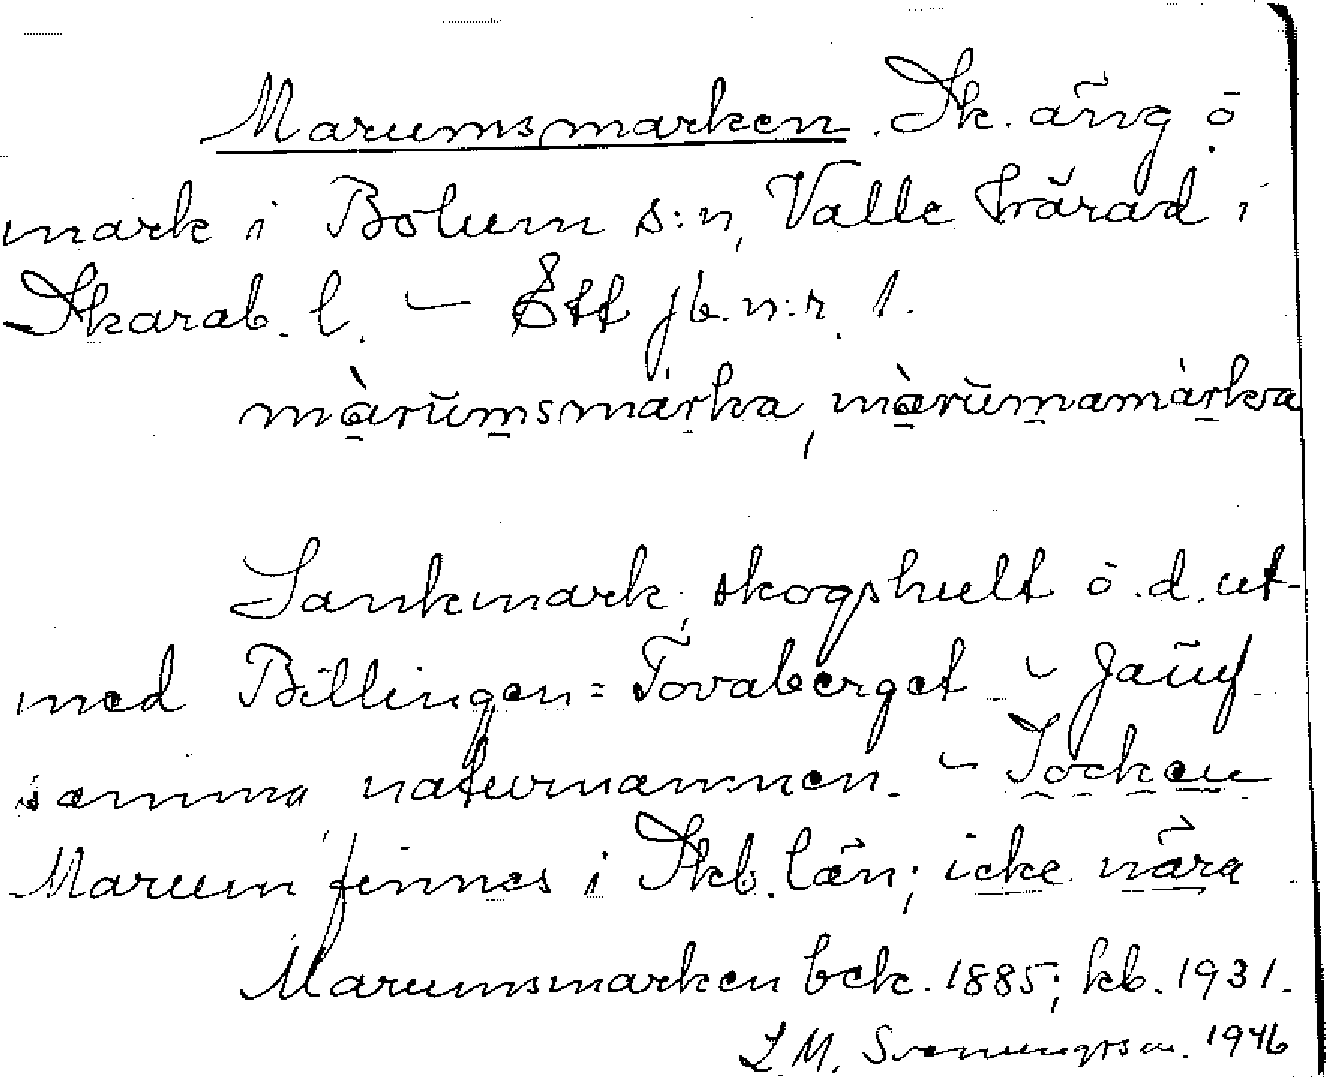 Marumsmarken. Sk. äng o.
mark i Bolum s:n, Valle härad i
Skarab. l. – Ett jb. n:r. 1.
màrŭmsmárka, màrŭmamàrka
Sankmark, skogshult o. d. ut-
med Billingen = Tovaberget. – Jämf.
samma naturnamnen. – Socken
Marum finnes i Skb. län; icke nära.
Marumsmarken bek. 1885; kb. 1931.
L. M. Svenungsson. 1946